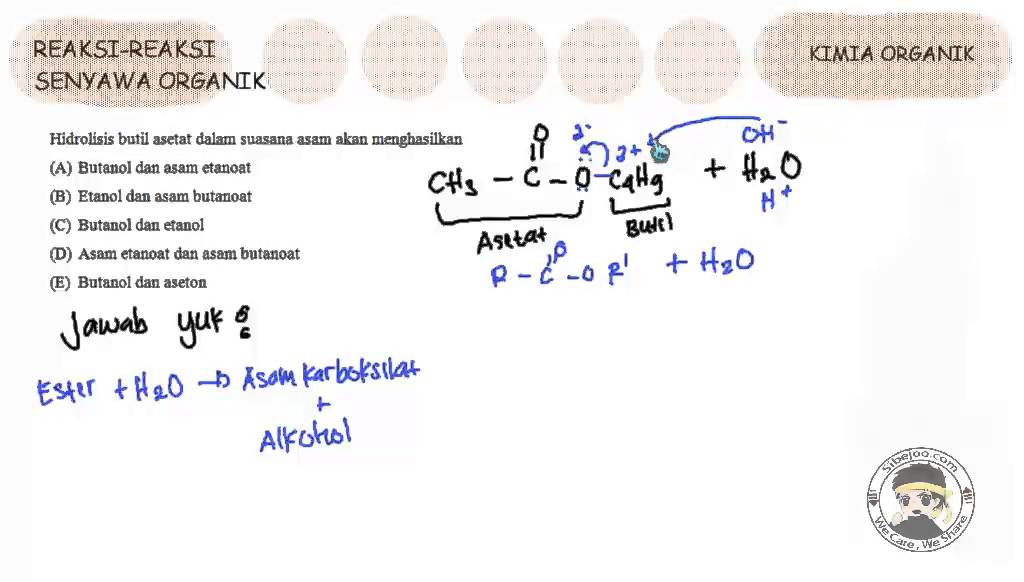 REAKSI-REAKSI
SENYAWA ORGANIK
KIMIA ORGANIK
Hidrolisis butil asetat dalam suasana asam akan menghasilkan
(A) Butanol dan asam etanoat
(B) Etanol dan asam butanoat
(C) Butanol dan etanol
(D) Asam etanoat dan asam butanoat
(E) Butanol dan aseton
Jawab yuk :
Ester + H2O → Asam Karboksilat
+
Alkohol
O
OH⁻
CH3 – C – O – C4H9 + H2O
H⁺
Asetat
Butil
O
R – C – O R' + H2O
Sibejoo.com
We Care, We Share